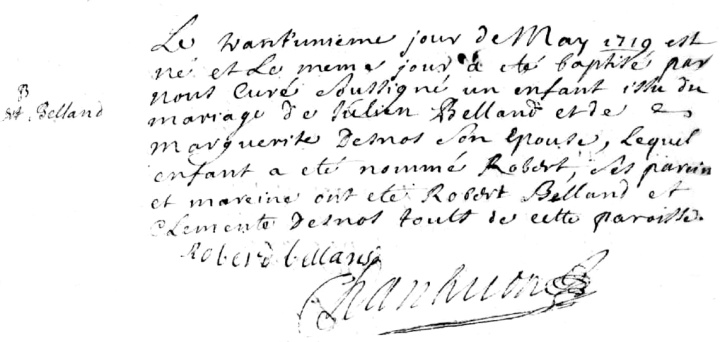 Le vant'unieme jour de May 1719 est
né et Le meme jour a eté baptisé par
nous Curé soussigné un enfant issu du
B
Rt. Belland
mariage de Julien Belland et de
Marguerite Desnos son Epouse, Lequel
enfant a eté nommé Robert, ses parein
et mareine ont eté Robert Belland et
Clemente Desnos touts de cette paroisse.
Roberd bellans